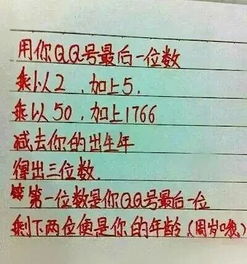 用你QQ号最后一位数
乘以2，加上5.
乘以50，加上1766
减去你的出生年
得出三位数.
第一位数是你QQ号最后一位
剩下两位便是你的年龄（周岁哦）